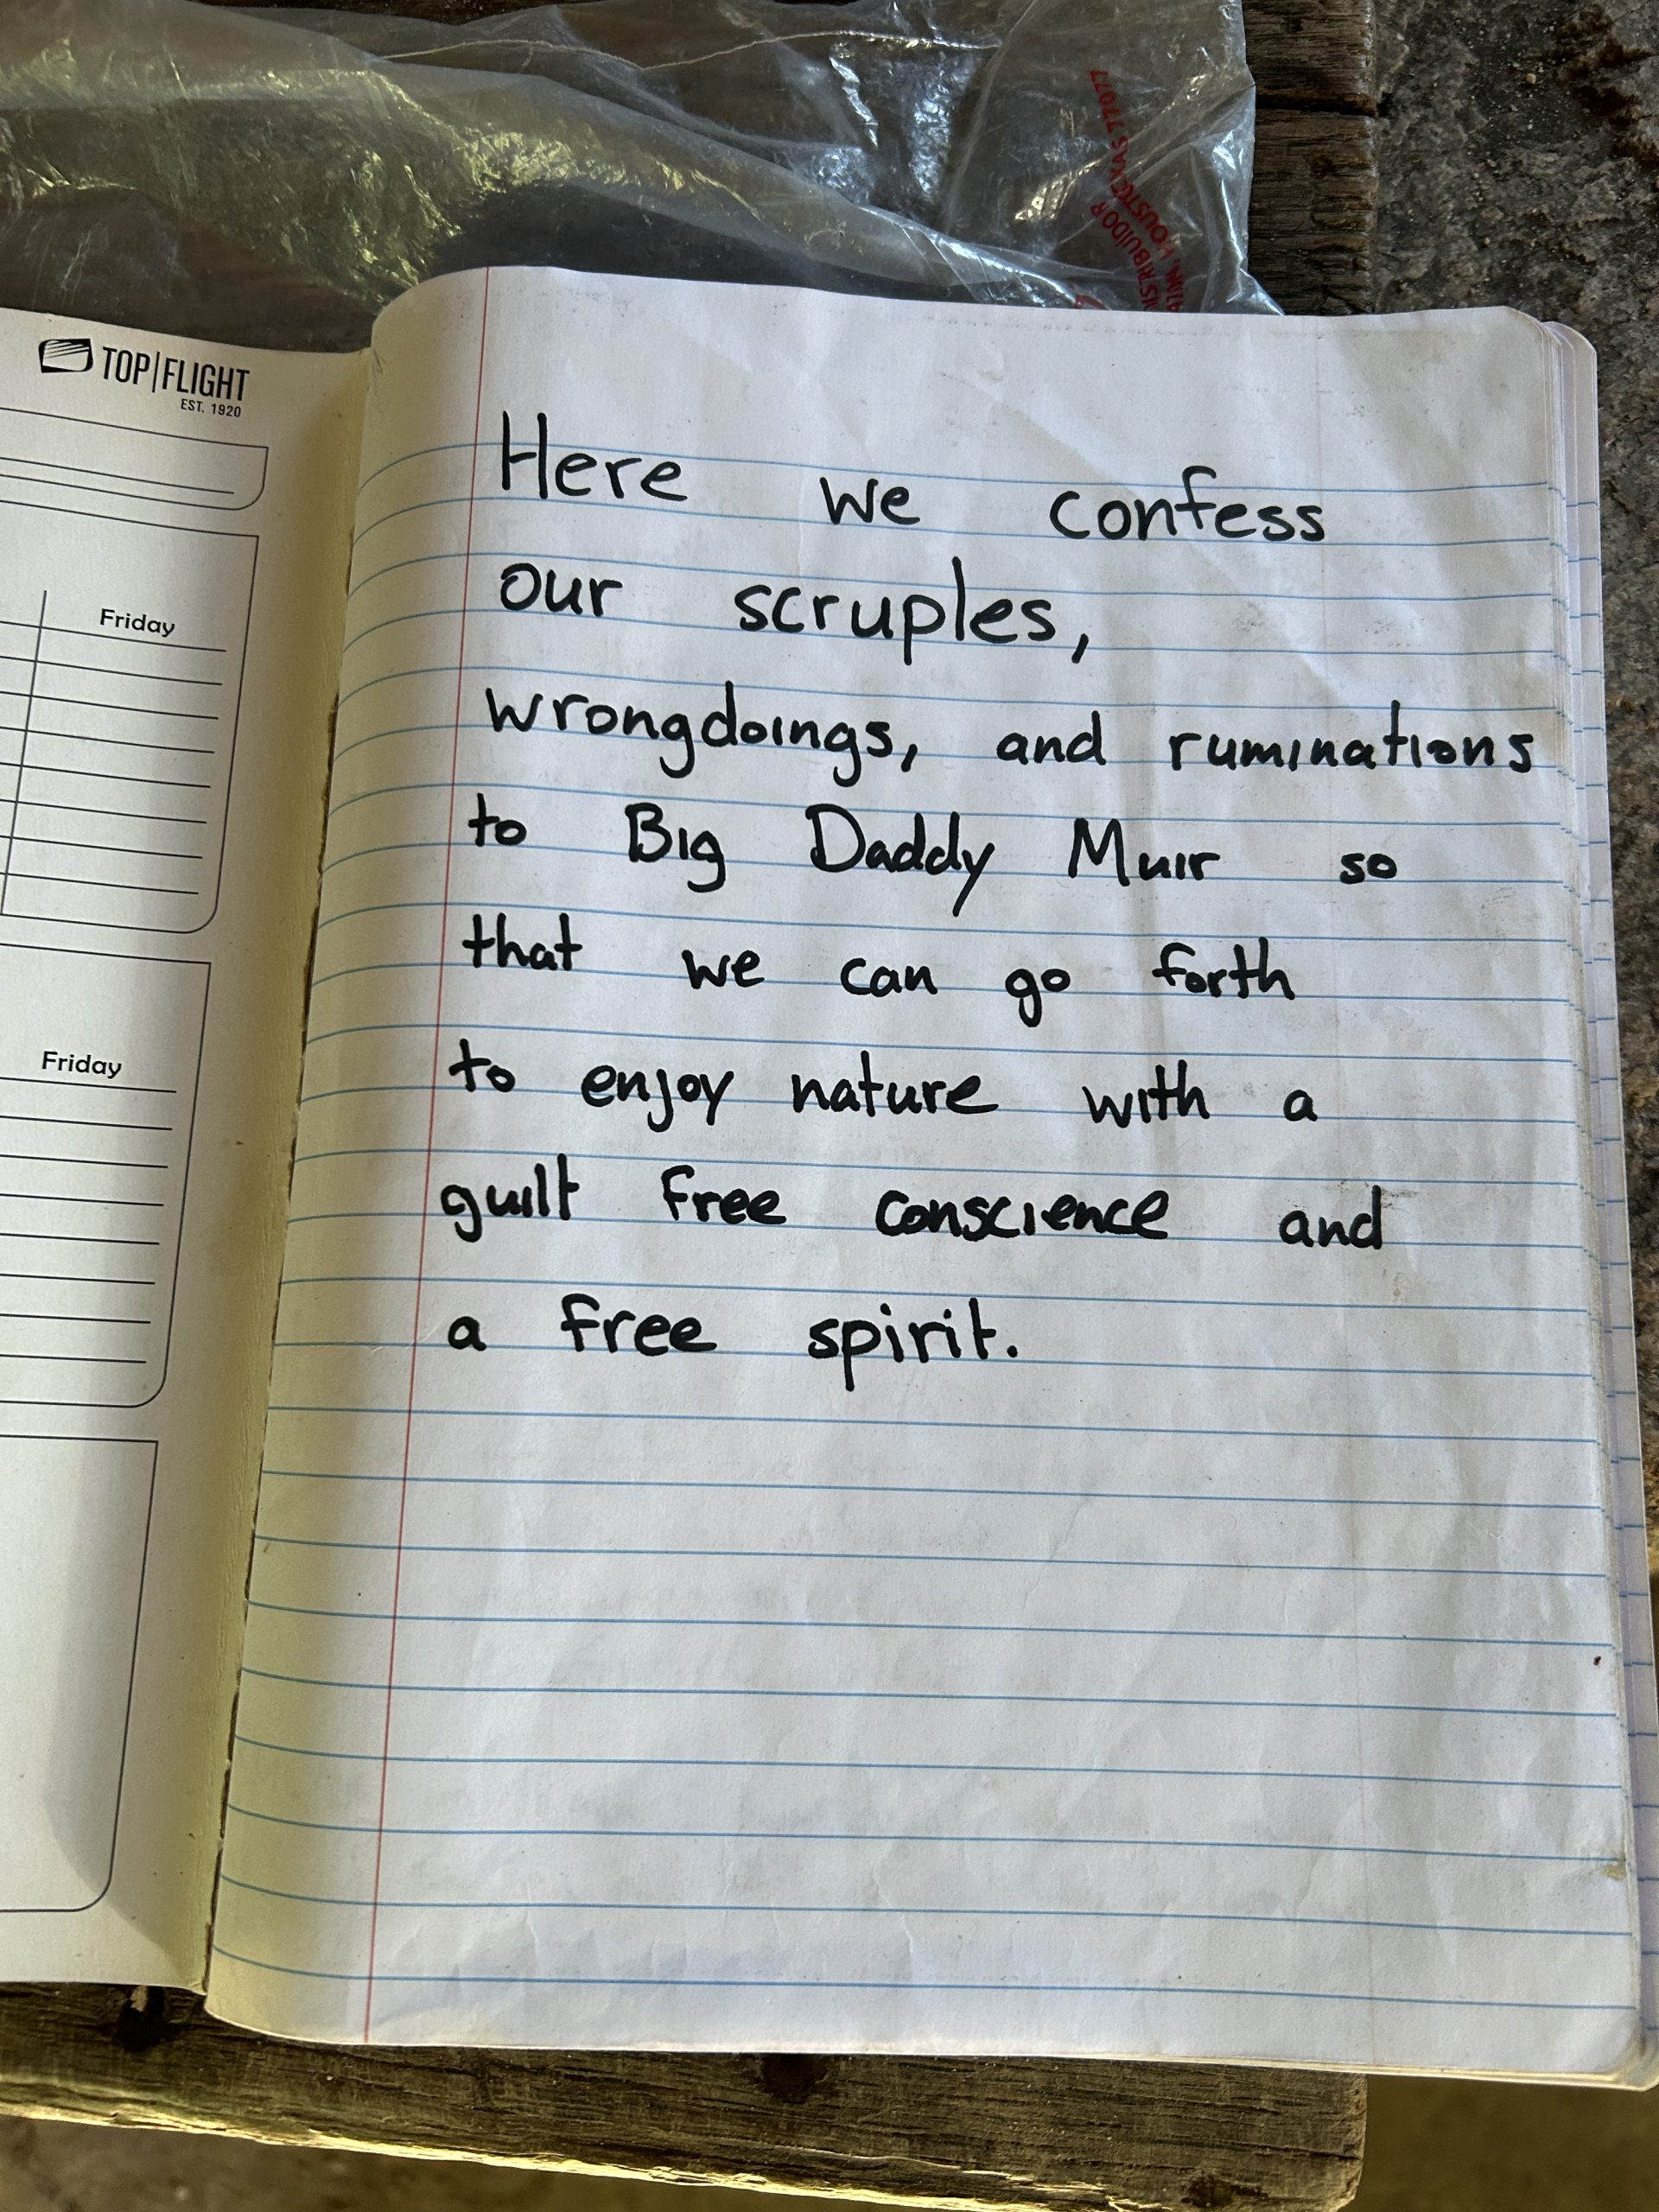 TOP|FLIGHT
EST. 1920
Friday
Friday
Here we confess
our scruples,
wrongdoings, and ruminations
to Big Daddy Muir so
that we can go forth
to enjoy nature with a
guilt free conscience and
a free spirit.
77077